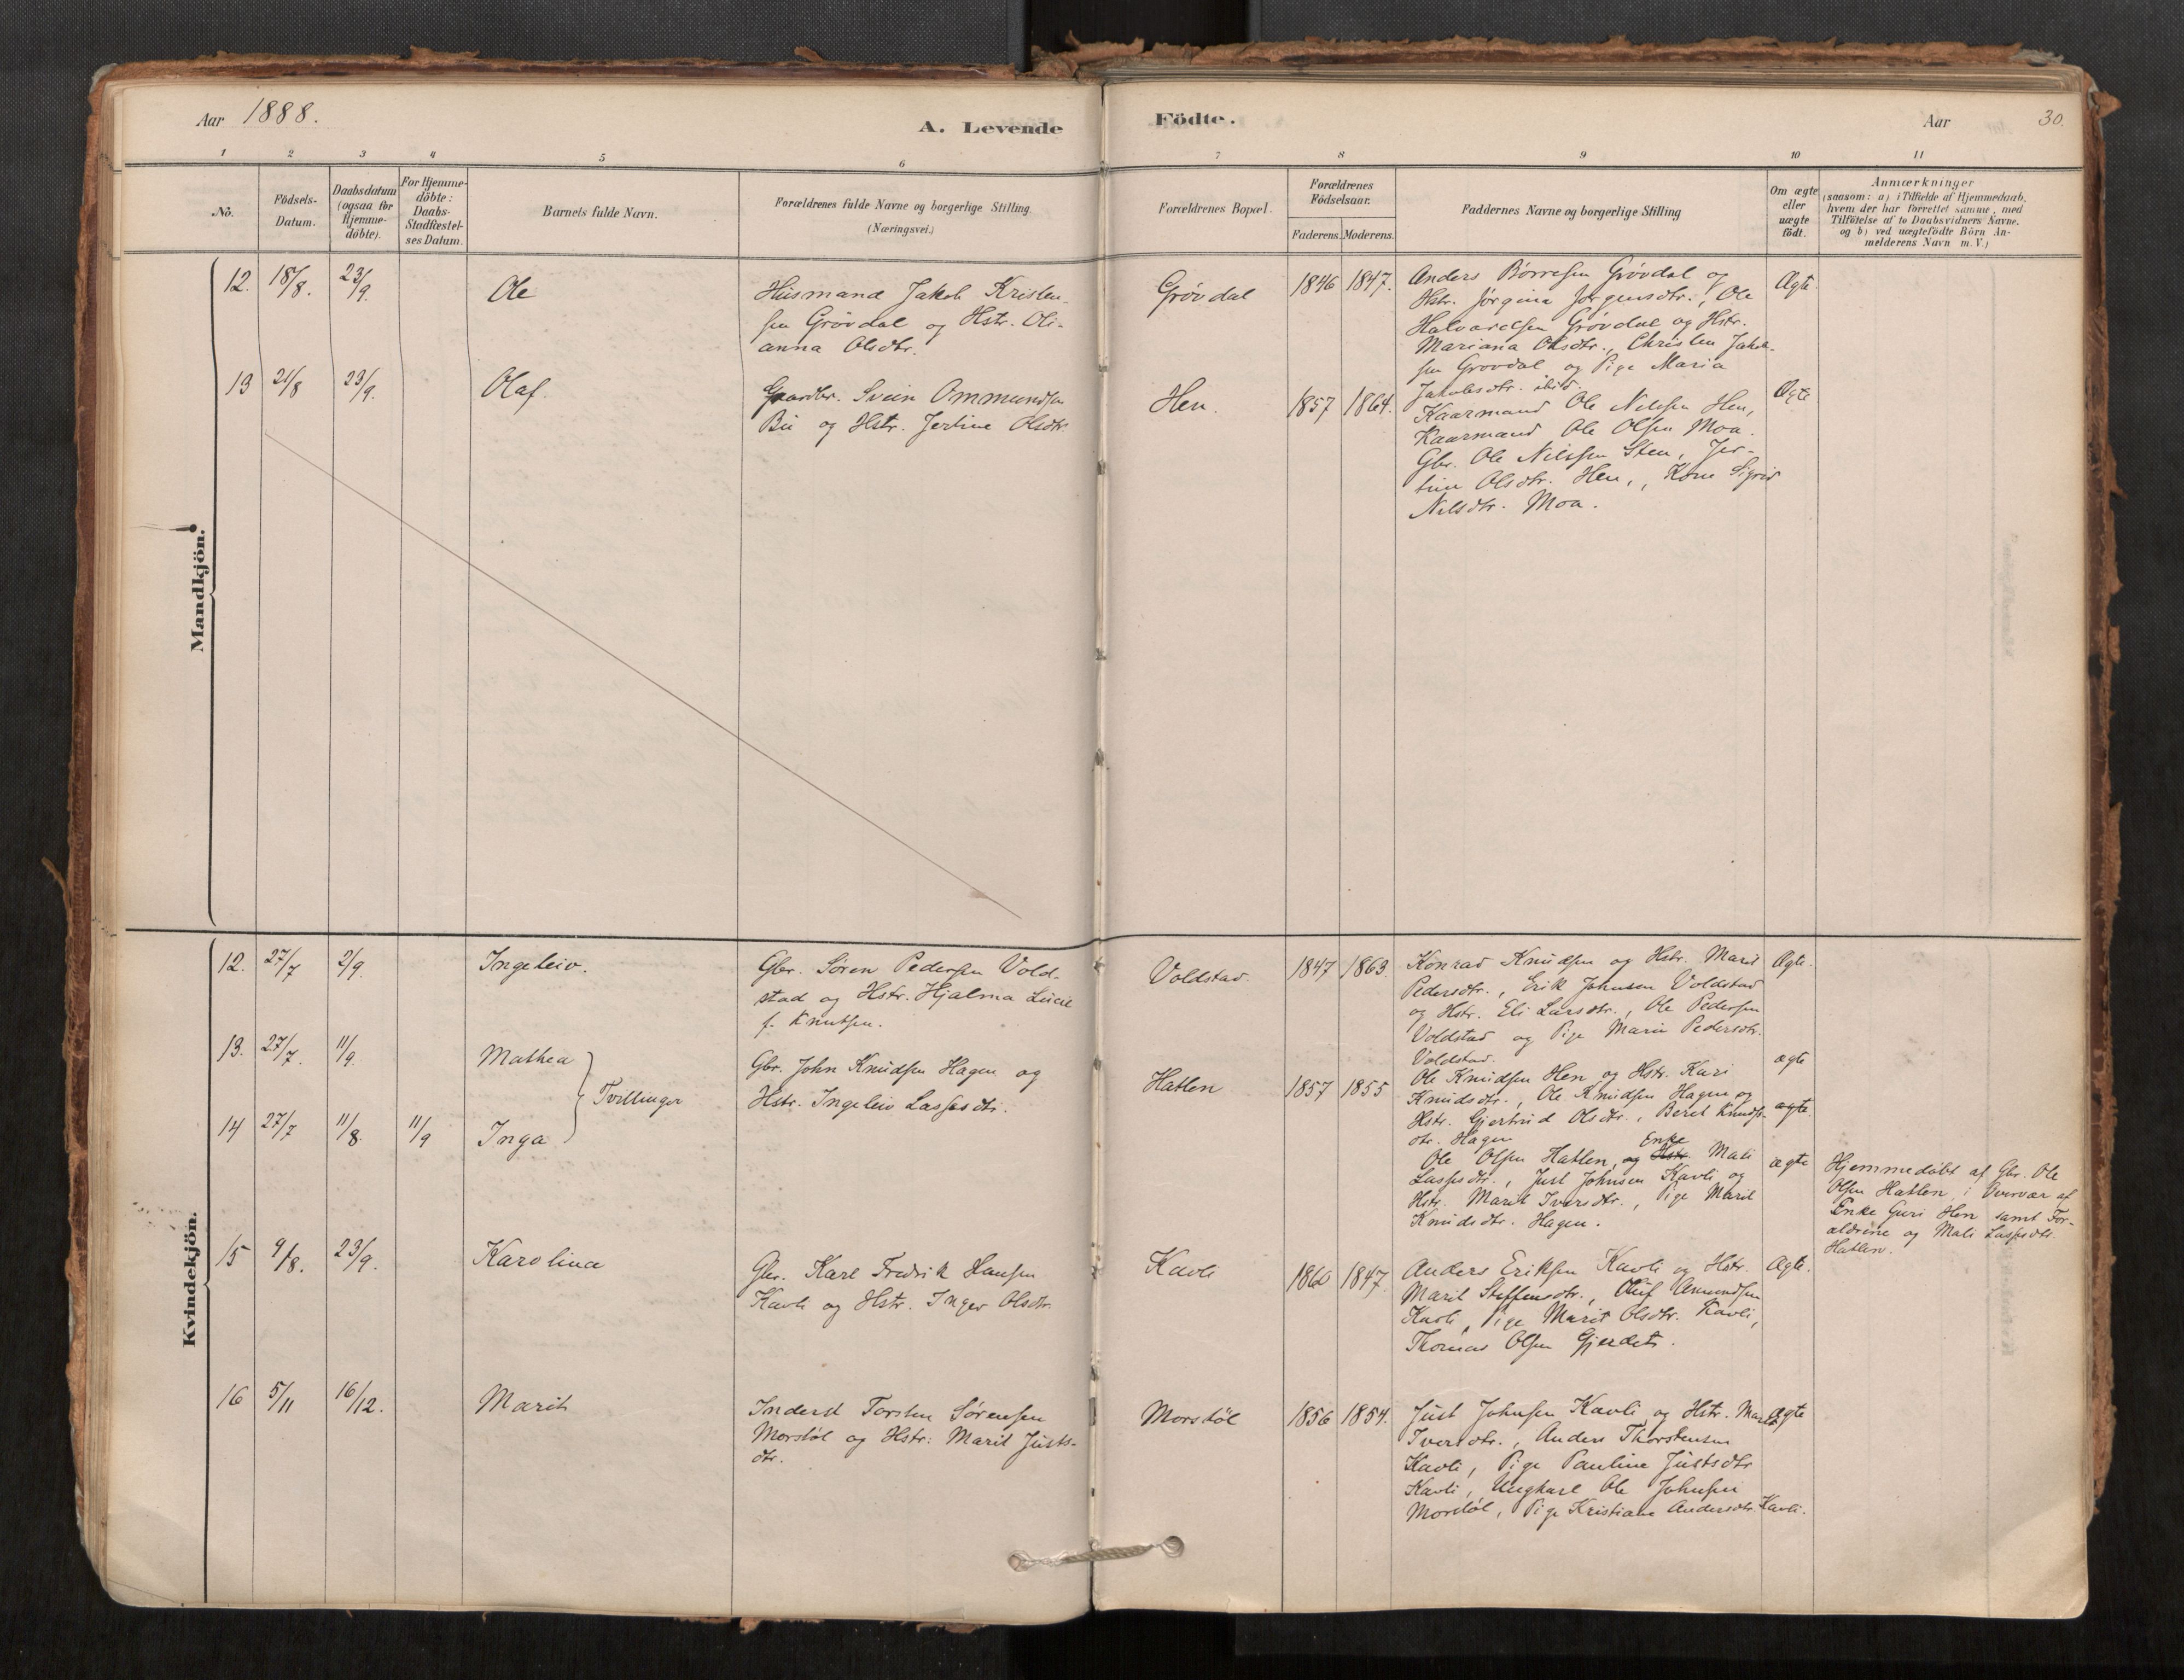 Aar 1888.
A. Levende Födte.
Aar 30.
1 2 3 4 5 6 7 8 9 10 11
No.
Födsels-
Datum.
Daabsdatum
(ogsaa for
Hjemme-
döbte).
For Hjemme-
döbte:
Daabs-
Stadfæstel-
ses Datum.
Barnets fulde Navn.
Forældrenes fulde Navne og borgerlige Stilling
(Næringsvei.)
Forældrenes Bopæl.
Forældrenes
Födselsaar.
Faderens. Moderens.
Faddernes Navne og borgerlige Stilling
Om ægte
eller
uægte
födt.
Anmærkninger
(saasom: a) i Tilfælde af Hjemmedaab,
hvem der har forrettet samme, med
Tilföielse af to Daabsvidners Navne,
og b) ved uægtefödte Börn An-
melderens Navn m. V.)
Mandkjön.
12. 18/8. 23/9. Ole
Husmand Jakob Kristen-
sen Grövdal og Hstr. Oli-
anna Olsdtr.
Grövdal 1846 1847.
Anders Börresen Grövdal og
Hstr. Jörgina Jörgensdtr., Ole
Halvorsen Grövdal og Hstr.
Mariana Olsdtr., Christen Jakob-
sen Grovdal og Pige Maria
Jakobsdtr. ibid.
Ægte.
13 21/8 23/9. Olaf.
Gaardbr. Svein Ommundsen
Bü og Hstr. Jertine Olsdtr.
Hen. 1857 1864.
Kaarmand Ole Nilssen Hen,
Kaarmand Ole Olsen Moa.
Gbr. Ole Nilssen Sten, Jer-
tine Olsdtr. Hen,, Kone Sigrid
Nilsdtr. Moa.
Ægte
Kvindekjön.
12. 27/7 2/9. Ingeleiv.
Gbr. Sören Pedersen Vold-
stad og Hstr. Hjalma Lucie
f. Knutsen.
Voldstad. 1847 1863
Konrad Knudsen og Hstr. Marit
Pedersdtr., Erik Johnsen Voldstad
og Hstr. Eli Larsdtr., Ole Pedersen
Voldstad og Pige Marie Pedersdtr.
Voldstad.
Ægte.
13. 27/7. 11/9. Mathea
Tvillinger
Gbr. John Knudsen Hagen og
Hstr. Ingeleiv Lassesdtr.
Hatlen 1857 1855
Ole Knudsen Hen og Hstr. Kari
Knudsdtr., Ole Knudsen Hagen og
Hstr. Gjertrud Olsdtr., Beret Knuds-
dtr. Hagen
ægte
ægte
14 27/7 11/8. 11/9 Inga
Enke
Ole Olsen Hatlen, og Hstr. Mali
Lassesdtr., Just Johnsen Kavli og
Hstr. Marit Iversdtr., Pige Marit
Knudsdtr. Hagen.
ægte
Hjemmedöbt af Gbr. Ole
Olsen Hatlen i Overvær af
Enke Guri Hen samt For-
ældrene og Mali Lassesdtr.
Hatlen.
15 9/8. 23/9. Karolina
Gbr. Karl Fredrik Hansen
Kavli og Hstr. Inger Olsdtr.
Kavli 1860 1847.
Anders Eriksen Kavli og Hstr.
Marit Steffensdtr., Oluf Amundsen
Kavli, Pige Marit Olsdtr. Kavli,
Thomas Olsen Gjerdet.
Ægte.
16 5/11 16/12. Marit
Inderst Torsten Sörensen
Morstöl og Hstr: Marit Justs-
dtr.
Morstöl 1856 1854.
Just Johnsen Kavli og Hstr. Marit
Iversdtr., Anders Thorstensen
Kavli, Pige Pauline Justsdtr
Kavli, Ungkarl Ole Johnsen
Morstöl, Pige Kristiane Andersdtr. Kavli.
ægte